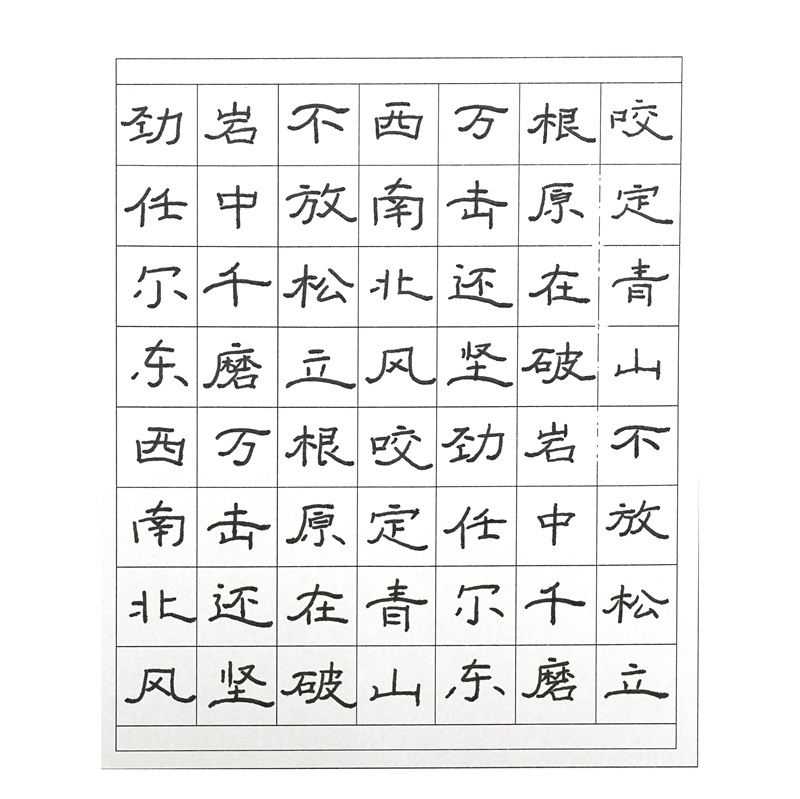 咬定青山不放松立
根原在破岩中千磨
万击还坚劲任尔东
西南北风咬定青山
不放松立根原在破
岩中千磨万击还坚
劲任尔东西南北风